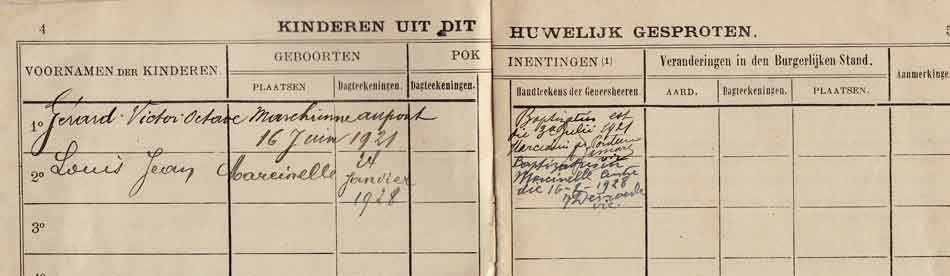 4
KINDEREN UIT DIT HUWELIJK GESPROTEN.
VOORNAMEN DER KINDEREN.
GEBOORTEN
PLAATSEN
Dagteekeningen.
POK INENTINGEN (1)
Dagteekeningen.
Handteekens der Geneesheeren.
Veranderingen in den Burgerlijken Stand.
AARD.
Dagteekeningen.
PLAATSEN.
Aanmerkinge
1º Gérard Victor Octave Marchienne au pont
16 Juin 1921
Baptizatus est
die Julii 1921
2º Louis Jean Marcinelle 24
Janvier
1928
Marcinelle
die 16-2-1928
vic.
3º